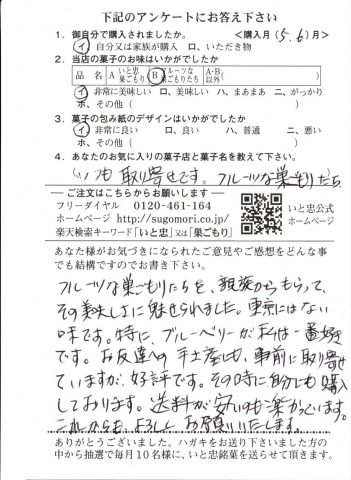 下記のアンケートにお答え下さい
1. 御自分で購入されましたか。 <購入月(5.6)月>
イ 自分又は家族が購入 ロ、いただき物
2. 当店の菓子のお味はいかがでしたか
品名 A いと忠巣ごもり B フルーツな巣ごもりたち A·B以外( )
イ 非常に美味しい ロ、美味しい ハ、まあまあ ニ、がっかり
ホ、その他( )
3. 菓子の包み紙のデザインはいかがでしたか
イ 非常に良い ロ、良い ハ、普通 ニ、悪い
ホ、その他( )
4. あなたのお気に入りの菓子店と菓子名を教えて下さい。
いつも 取り寄せです。フルーツな巣ごもりたち
ご注文はこちらからお願いします
フリーダイヤル 0120-461-164
ホームページ http://sugomori.co.jp/
楽天検索キーワード「いと忠」又は「巣ごもり」
いと忠公式
ホームページ
あなた様がお気づきになられたご意見やご感想をどんな事
でも結構ですのでお書き下さい。
フルーツな巣ごもりたちを、親族からもらって、
その美味しさに魅せられました。東京にはない
味です。特に、ブルーベリーが私は一番好き
です。お友達への手土産にも、事前に取り寄せ
ていますが、好評です。その時に自分にも購入
しております。送料が安いのも楽かっています。
これからも、よろしくお願いいたします。
ありがとうございました。ハガキをお送り下さいました方の
中から抽選で毎月10名様に、いと忠銘菓を送らせて頂きます。